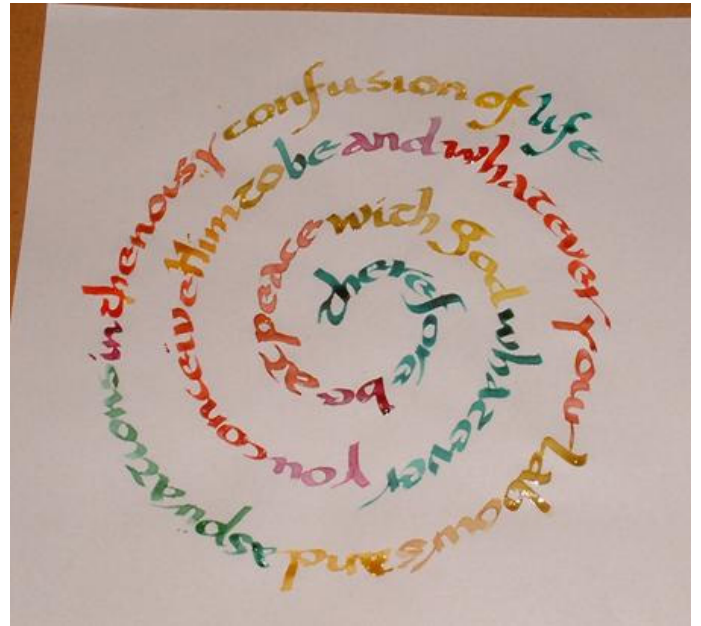 therefore be at peace with god whatever you conceive Him to be and whatever your labours and aspirations in the noisy confusion of life